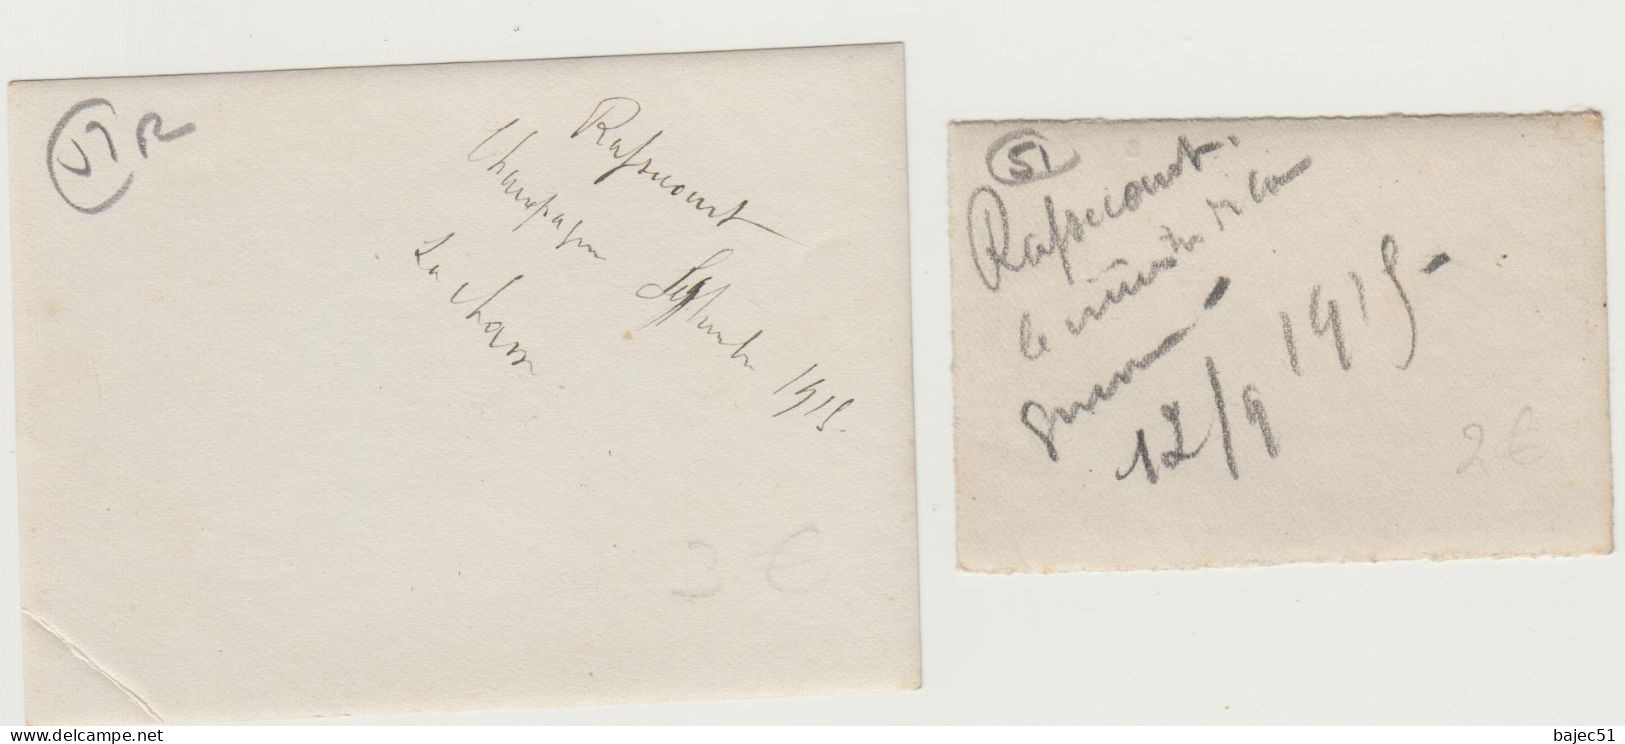 51 R
Rapsecourt
Champagne
Septembre 1915.
La chasse
3 €
51
Rapsecourt.
le ministre de la
guerre.
12/9 1915-
2 €
www.delcampe.net
bajec51